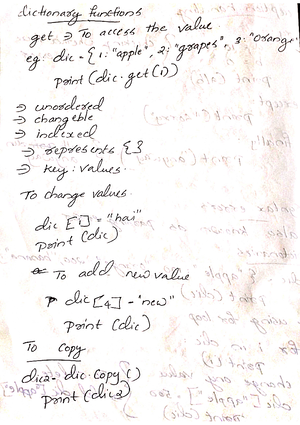 dictionary functions
get ⇒ To access the value
eg: dic = {1: "apple", 2: "grapes", 3: "orange
print (dic.get(1))
⇒ unordered
⇒ changeble
⇒ indexed
⇒ represents {}
⇒ key: values.
To change values.
dic [1] = "hai"
print (dic)
To add new value
dic [4] = "new"
print (dic)
To copy
dic2 = dic.copy ()
print (dic2)